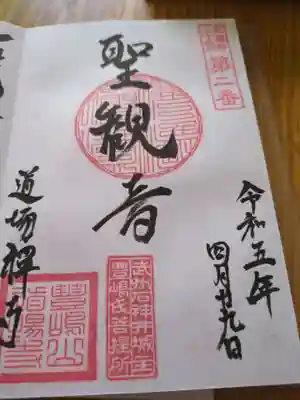 第二番
聖観音
令和五年
四月廿九日
武州石神井城主
豊嶋氏菩提所
道場禅寺
豊嶋山
道場寺